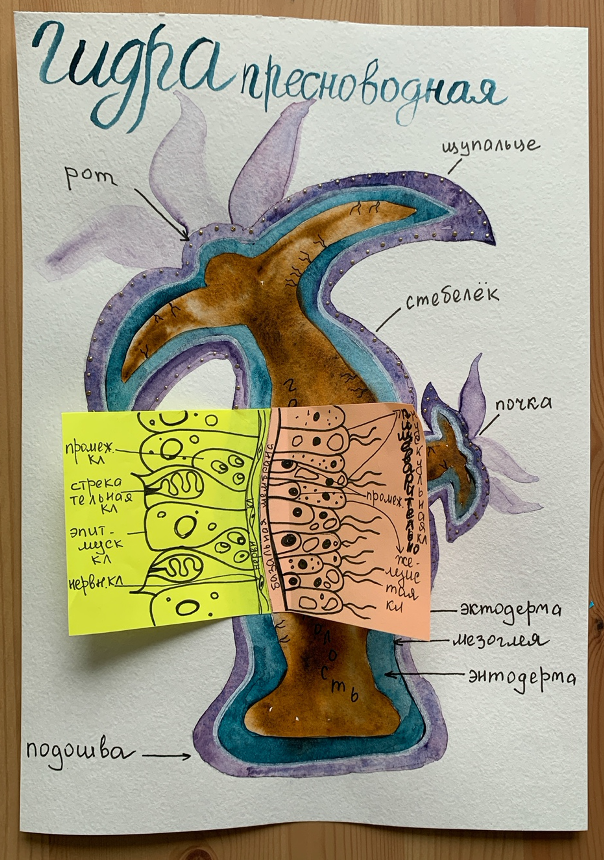 гидра пресноводная
щупальце
рот
стебелёк
почка
промеж.
кл
стрека
тельная
кл
эпит-
муск
кл
нервн кл
нервн кл
базальная мембрана
промеж.
пищеварительно
мускульная кл
же-
лезис
тая
кл
эктодерма
мезоглея
энтодерма
ость
подошва